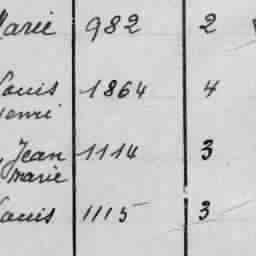 Marie 982 2
Louis 1864 4
Henri
Jean 1114 3
Marie
Louis 1115 3